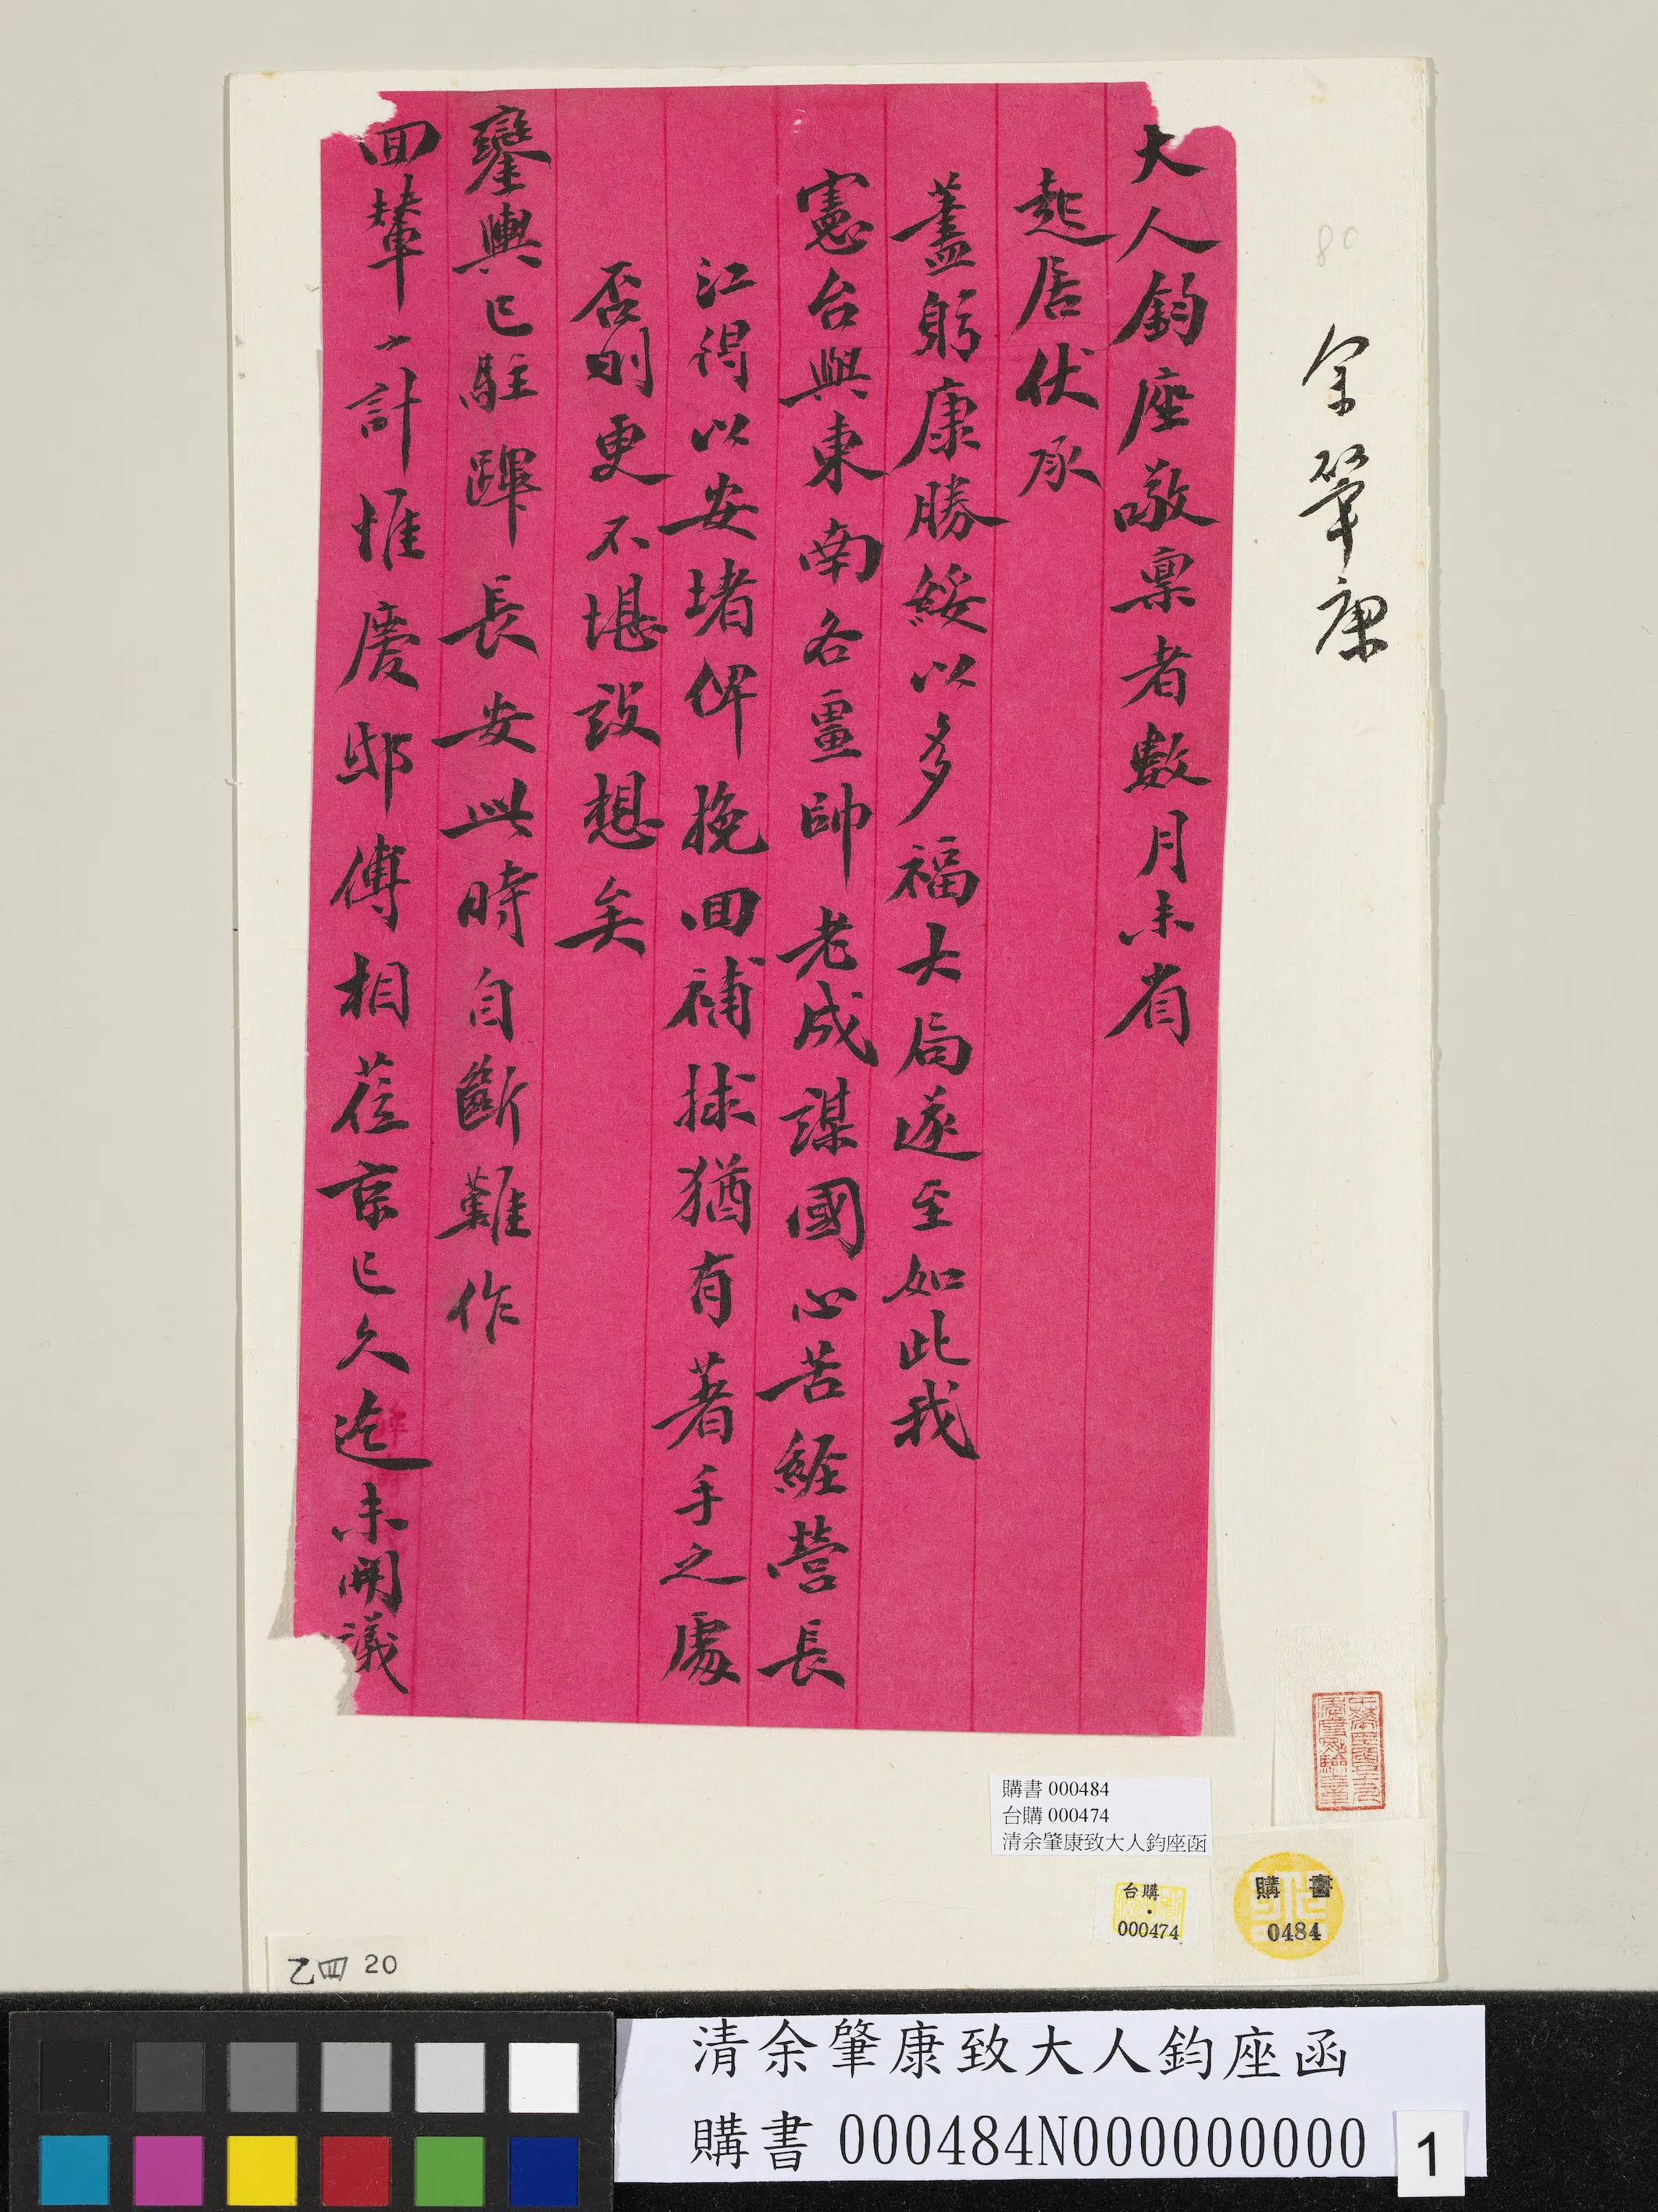 大人鈞座敬稟者數月未省
起居伏承
藎躬康勝綏以多福大局遂至如此我
憲台與東南各畺帥老成謀國心苦經營長
江得以安堵俾挽回補捄猶有著手之處
否則更不堪設想矣
鑾輿已駐蹕長安此時自斷難作
回輦之計惟慶邸傅相蒞京已久迄未開議
余肇康
80
購書 000484
台購 000474
清余肇康致大人鈞座函
台購
000474
購書
0484
乙四 20
清余肇康致大人鈞座函
購書 000484N000000000
1